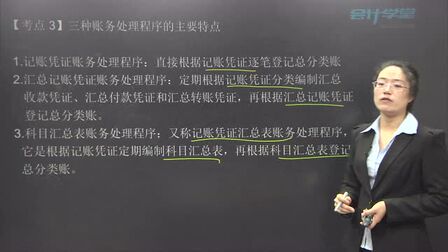 会计学堂
【考点 3】三种账务处理程序的主要特点
1.记账凭证账务处理程序：直接根据记账凭证逐笔登记总分类账
2.汇总记账凭证账务处理程序：定期根据记账凭证分类编制汇总
收款凭证、汇总付款凭证和汇总转账凭证，再根据汇总记账凭证
登记总分类账。
3.科目汇总表账务处理程序：又称记账凭证汇总表账务处理程序，
它是根据记账凭证定期编制科目汇总表，再根据科目汇总表登记
总分类账。